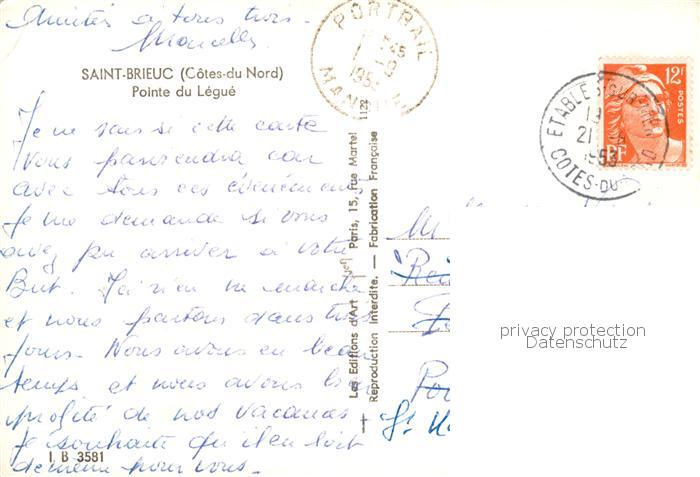 Amitiés à tous trois -
Marcelle
SAINT-BRIEUC (Côtes-du Nord)
Pointe du Légué
Je ne sais si cette carte
vous parviendra car
avec tous ces événements
je me demande si vous
avez pu arriver à votre
But.
et nous partons dans trois
jours. Nous avons eu beau
temps et nous avons bien
profité de nos vacances
Je souhaite qu'il en soit
de même pour vous -
I B 3581
Les Editions d'Art Yvon Paris, 15, rue Martel 1122
Reproduction Interdite. — Fabrication Française
PORTBAIL
195
MANCHE
12F
POSTES
RF
ETABLES-SUR-MER
21
1953
COTES-DU
M
privacy protection
Datenschutz